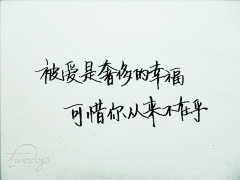 被爱是奢侈的幸福
可惜你从来不在乎
twodogs